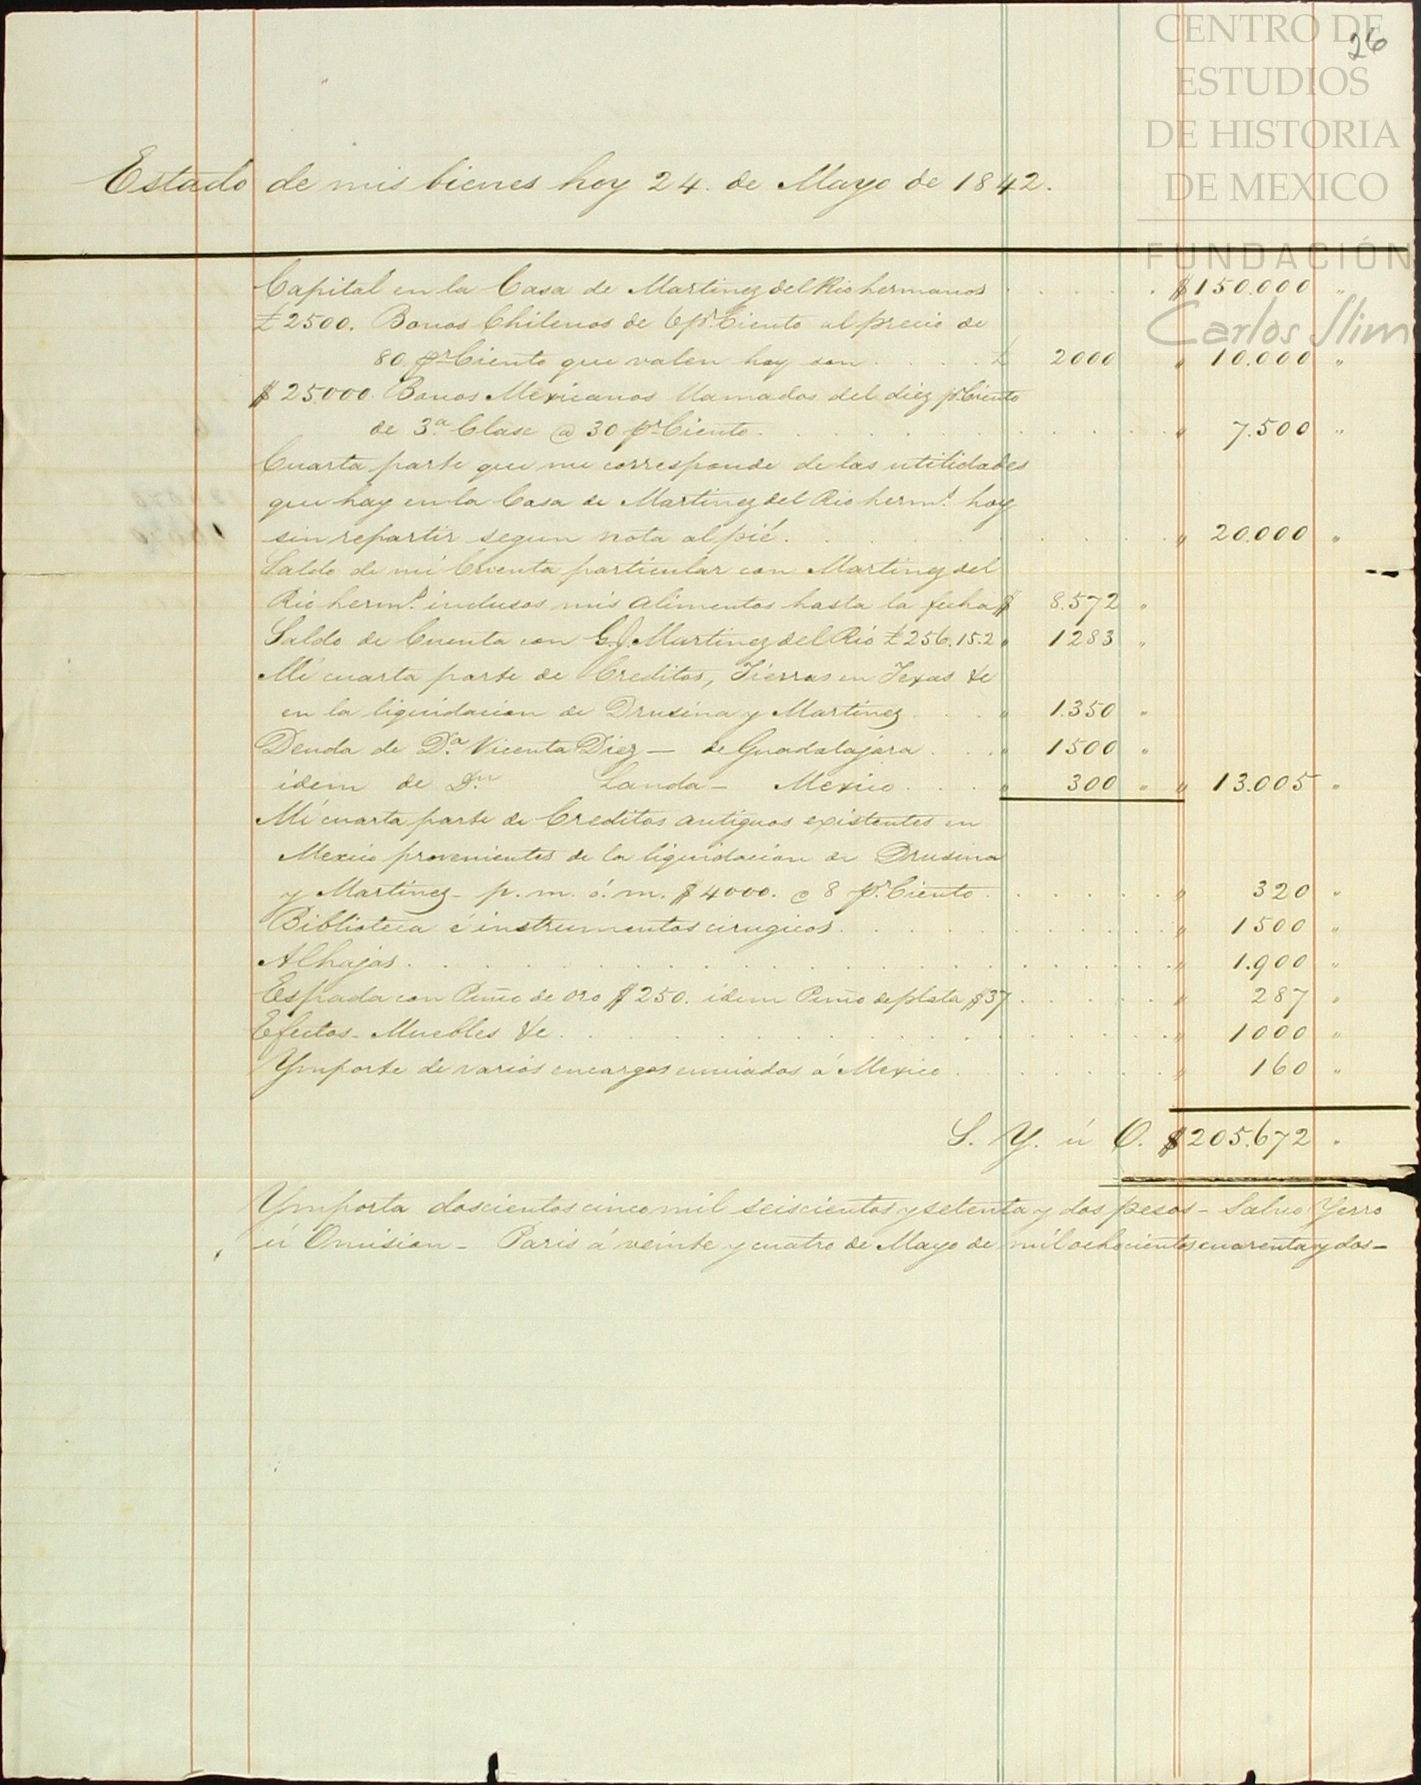 CENTRO DE
ESTUDIOS
DE HISTORIA
DE MEXICO
FUNDACIÓN
Carlos Slim
26
Estado de mis bienes hoy 24. de Mayo de 1842.
Capital en la Casa de Martinez del Rio hermanos . . . . . $150.000 "
£2500. Bonos Chilenos de 6 pr. Ciento al precio de
80 pr. Ciento que valen hoy son . . . . £ 2000 " 10.000 "
$25000. Bonos Mexicanos llamados del diez pr. Ciento
de 3.a Clase @ 30 pr. Ciento . . . . " 7.500 "
Cuarta parte que me corresponde de las utilidades
que hay en la Casa de Martinez del Rio herms. hoy
sin repartir segun nota al pié . . . . " 20.000 "
Saldo de mi Cuenta particular con Martinez del
Rio herms. inclusos mis alimentos hasta la fecha $ 8.572 "
Saldo de Cuenta con G. J. Martinez del Rio £256.15.2 " 1283 "
Mi cuarta parte de Creditos, Tierras en Texas &c
en la liquidacion de Drusina y Martinez . . . " 1.350 "
Deuda de D.a Vicenta Diez — de Guadalajara . . . " 1500 "
idem de Dn. Landa — Mexico . . . . " 300 " " 13.005 "
Mi cuarta parte de Creditos antiguos existentes en
Mexico provenientes de la liquidacion de Drusina
y Martinez - p. m. ó. m. $4000. @ 8 pr. Ciento . . . . " 320 "
Biblioteca é instrumentos cirugicos . . . . " 1500 "
Alhajas . . . . " 1.900 "
Espada con Puño de oro $250. idem Puño de plata $37 . . . . " 287 "
Efectos - Muebles &c . . . . " 1000 "
Ymporte de varios encargos enviados á Mexico . . . . " 160 "
S. Y. ú O. $205.672 "
Ymporta doscientos cinco mil seiscientos y setenta y dos pesos - Salvo Yerro
ú Omision - Paris á veinte y cuatro de Mayo de mil ochocientos cuarenta y dos -